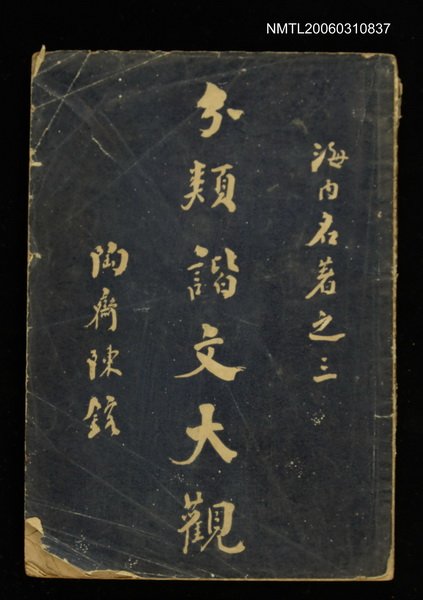 NMTL20060310837
海内名著之三
分類諧文大觀
陶齋陳